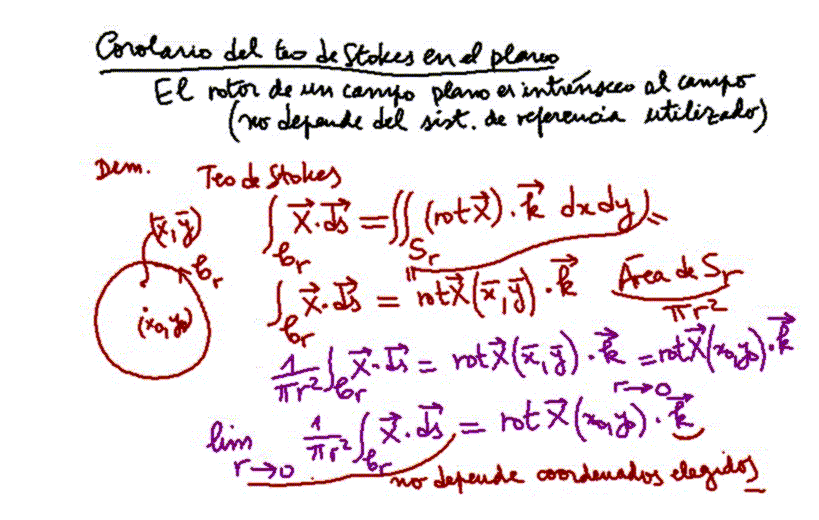 Corolario del teo de Stokes en el plano
El rotor de un campo plano es intrínseco al campo
(no depende del sist. de referencia utilizado)
Dem. Teo de Stokes
∫_{𝒞r} X⃗·ds⃗ = ∬_{Sr} (rot X⃗)·k⃗ dxdy
(x̄,ȳ)
𝒞r
(x₀,y₀)
∫_{𝒞r} X⃗·ds⃗ = rot X⃗(x̄,ȳ)·k⃗ Área de Sr
πr²
1/πr² ∫_{𝒞r} X⃗·ds⃗ = rot X⃗(x̄,ȳ)·k⃗ = rot X⃗(x₀,y₀)·k⃗
r→0
lim r→0 1/πr² ∫_{𝒞r} X⃗·ds⃗ = rot X⃗(x₀,y₀)·k⃗
no depende coordenadas elegidos